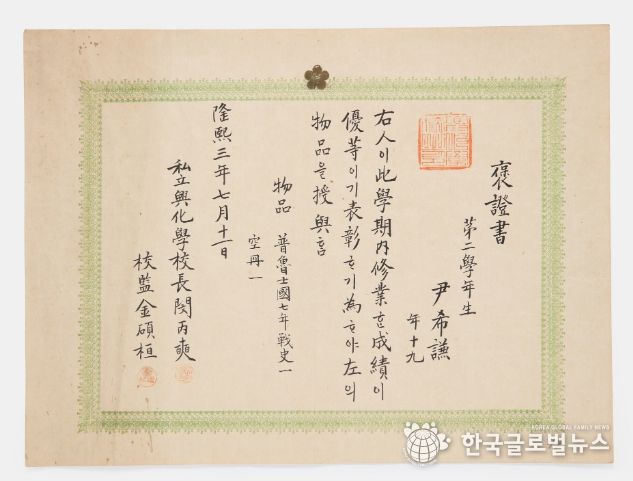 褒證書
第二學年生
尹希謙
年十九
右人이此學期內修業ᄒᆞᆫ成績이
優等이기表彰ᄒᆞ기爲ᄒᆞ야左의
物品을授與홈
物品 普魯士國七年戰史一
空冊一
隆熙三年七月十二日
私立興化學校長閔丙奭
校監金碩桓
KOREA GLOBAL FAMILY NEWS
한국글로벌뉴스